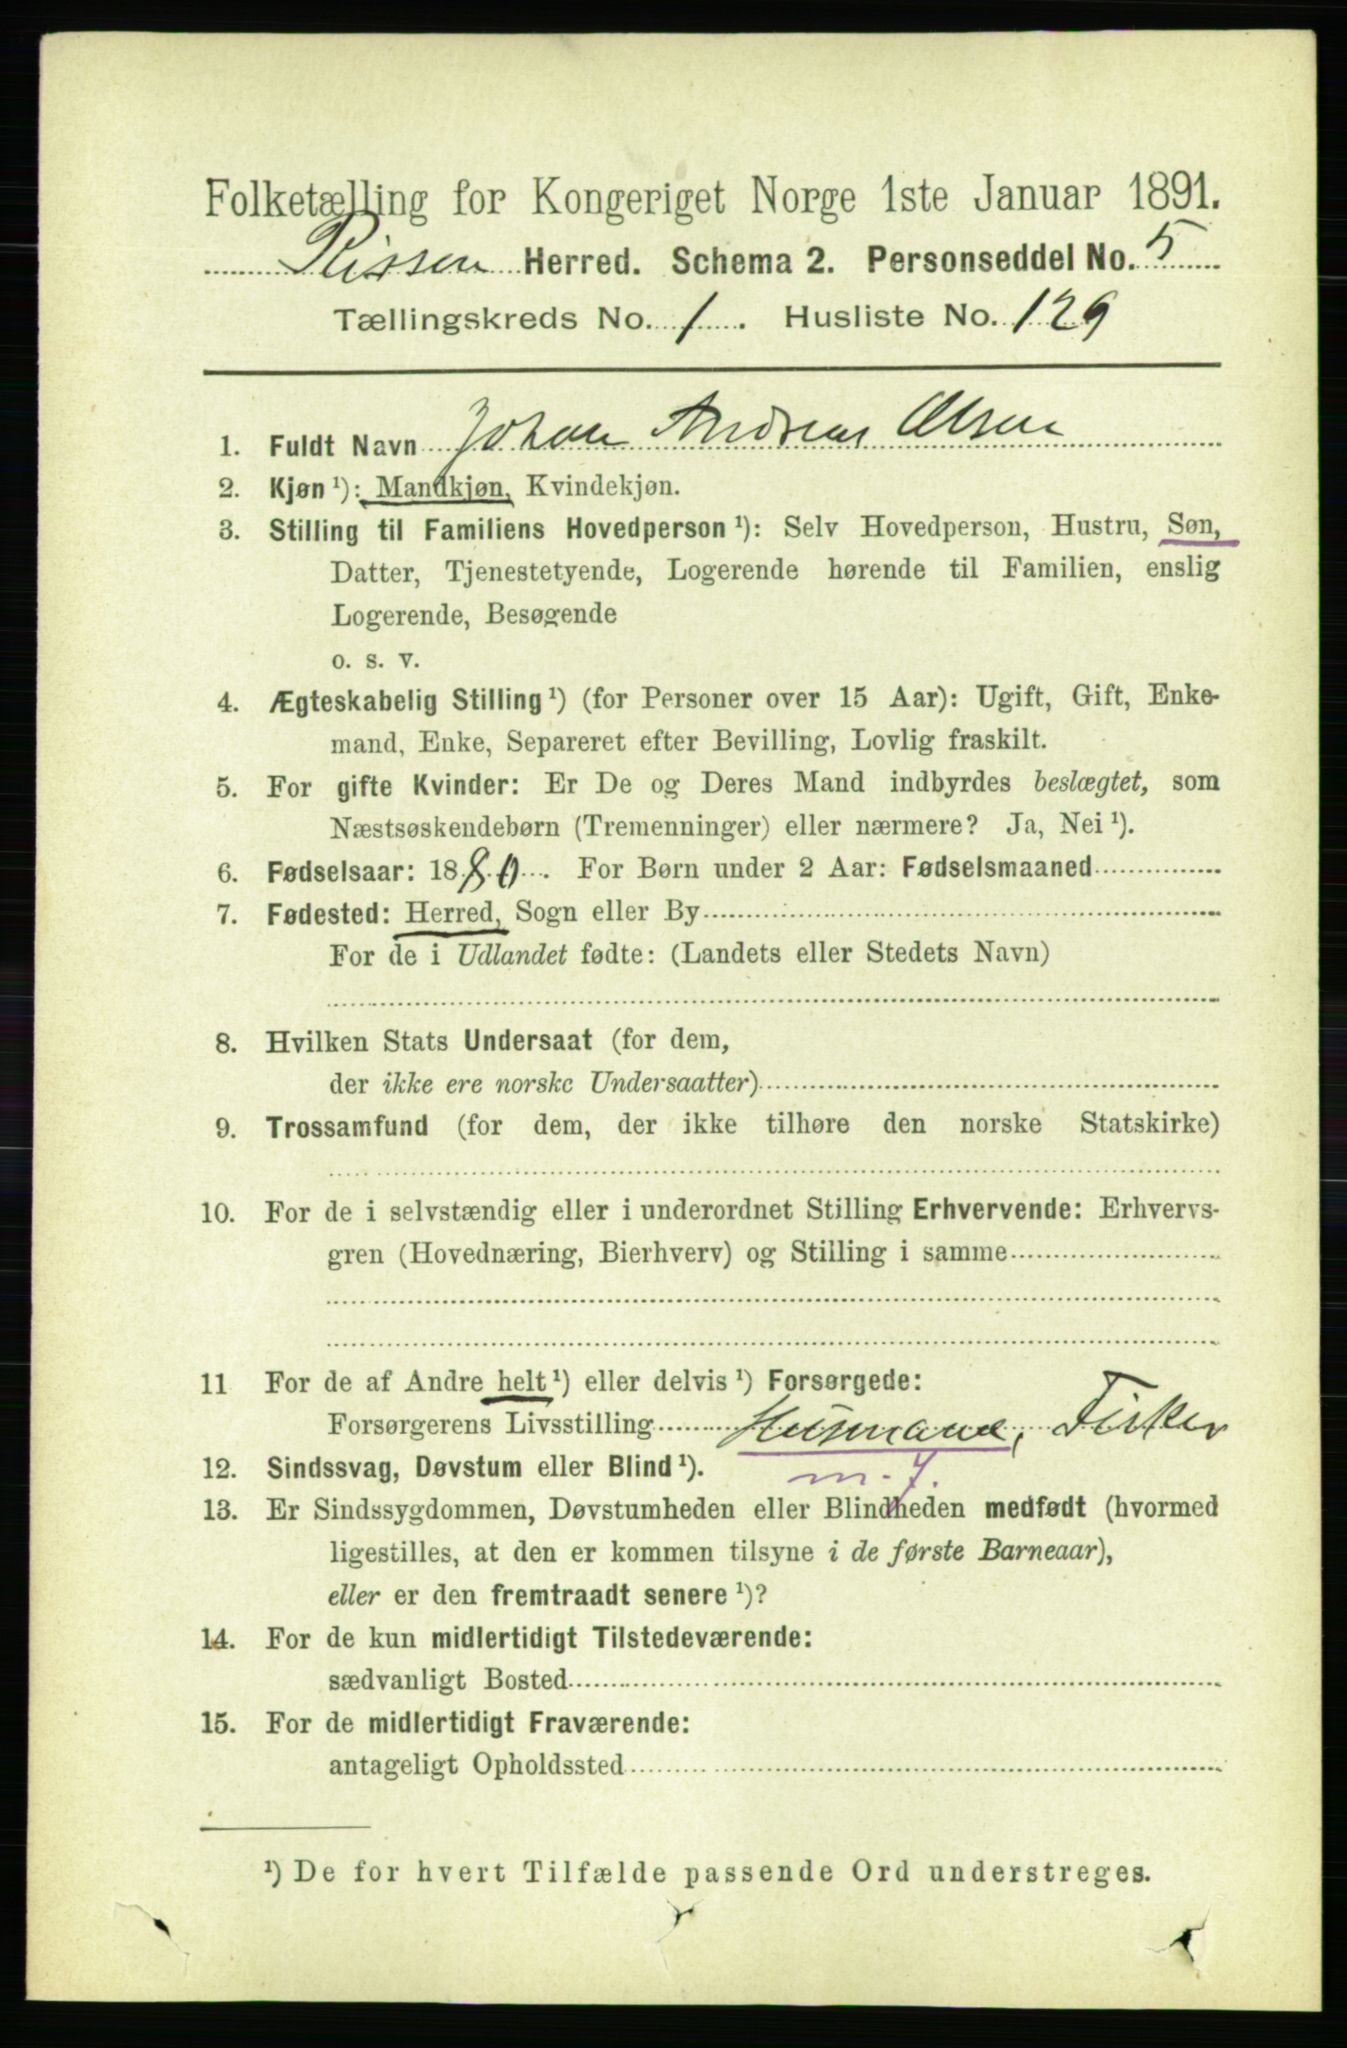 Folketælling for Kongeriget Norge 1ste Januar 1891.
Rissen Herred. Schema 2. Personseddel No. 5
Tællingskreds No. 1. Husliste No. 129
1. Fuldt Navn Johan Andreas Olsen
2. Kjøn ¹): Mandkjøn, Kvindekjøn.
3. Stilling til Familiens Hovedperson ¹): Selv Hovedperson, Hustru, Søn,
Datter, Tjenestetyende, Logerende hørende til Familien, enslig
Logerende, Besøgende
o. s. v.
4. Ægteskabelig Stilling ¹) (for Personer over 15 Aar): Ugift, Gift, Enke-
mand, Enke, Separeret efter Bevilling, Lovlig fraskilt.
5. For gifte Kvinder: Er De og Deres Mand indbyrdes beslægtet, som
Næstsøskendebørn (Tremenninger) eller nærmere? Ja, Nei ¹).
6. Fødselsaar: 1880. For Børn under 2 Aar: Fødselsmaaned
7. Fødested: Herred, Sogn eller By
For de i Udlandet fødte: (Landets eller Stedets Navn)
8. Hvilken Stats Undersaat (for dem,
der ikke ere norske Undersaatter)
9. Trossamfund (for dem, der ikke tilhøre den norske Statskirke)
10. For de i selvstændig eller i underordnet Stilling Erhvervende: Erhvervs-
gren (Hovednæring, Bierhverv) og Stilling i samme
11 For de af Andre helt ¹) eller delvis ¹) Forsørgede:
Forsørgerens Livsstilling Husmand, Fisker
12. Sindssvag, Døvstum eller Blind ¹). m. J.
13. Er Sindssygdommen, Døvstumheden eller Blindheden medfødt (hvormed
ligestilles, at den er kommen tilsyne i de første Barneaar),
eller er den fremtraadt senere ¹)?
14. For de kun midlertidigt Tilstedeværende:
sædvanligt Bosted
15. For de midlertidigt Fraværende:
antageligt Opholdssted
¹) De for hvert Tilfælde passende Ord understreges.